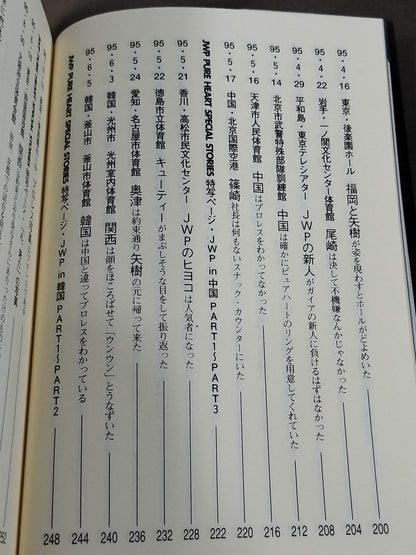 95・4・16 東京・後楽園ホール 福岡と矢樹が姿を現わすとホールがどよめいた 200
95・4・22 岩手・一ノ関文化センター体育館 尾崎は決して不機嫌なんかじゃなかった 204
95・4・29 平和島・東京テレシアター JWPの新人がガイアの新人に負けるはずはなかった 208
95・5・14 北京市武警特殊部隊訓練館 中国は確かにピュアハートのリングを用意してくれていた 212
95・5・16 天津市人民体育館 中国はプロレスをわかってなかった 216
95・5・17 中国・北京国際空港 篠崎社長は何もないスナック・カウンターにいた 220
JWP PURE HEART SPECIAL STORIES 特写ページ・JWP in 中国 PART1〜PART3 222
95・5・21 香川・高松市民文化センター JWPのヒヨコは人気者になった 228
95・5・22 徳島市立体育館 キューティーがまぶしそうな目をして振り返った 232
95・5・24 愛知・名古屋市体育館 奥津は約束通り矢樹の元に帰って来た 236
95・6・3 韓国・光州市 光州室内体育館 関西は顔をほころばせて「ウンウン」とうなずいた 240
95・6・5 韓国・釜山市 釜山市体育館 韓国は中国と違ってプロレスをわかっている 244
JWP PURE HEART SPECIAL STORIES 特写ページ・JWP in 韓国 PART1〜PART2 248
252